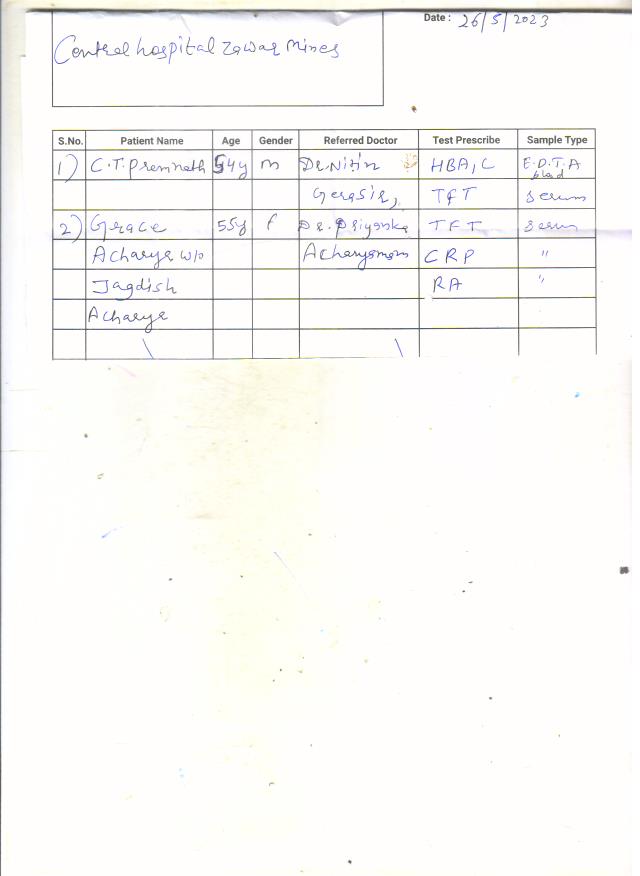 Date : 26/5/2023
Central hospital Zawar Mines
S.No. Patient Name Age Gender Referred Doctor Test Prescribe Sample Type
1) C.T. Premnath 54y m Dr. Nitin HBA1C E.D.T.A blood
Sir, TFT serum
2) Grace 55y f Dr. Priyanka TFT serum
Acharya w/o Acharya mam CRP "
Jagdish RA "
Acharya